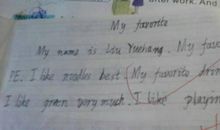 after work. And
My favorite
My name is Liu Yuehang. My favo
PE. I like noodles best. My favorite drin
I like green very much. I like playin